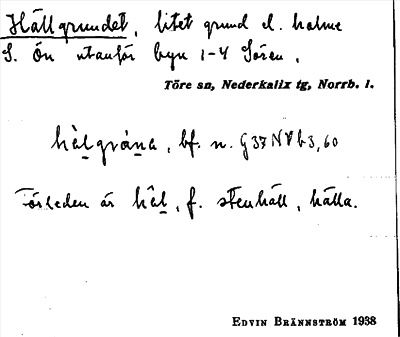 Hällgrundet, litet grund el. holme
S. Ön utanför byn 1-4 Sören.
Töre sn, Nederkalix tg, Norrb. l.
hälgråna, bf. n. G37NV b3,60
Förleden är häl, f. stenhäll, hälla.
EDVIN BRÄNNSTRÖM 1938